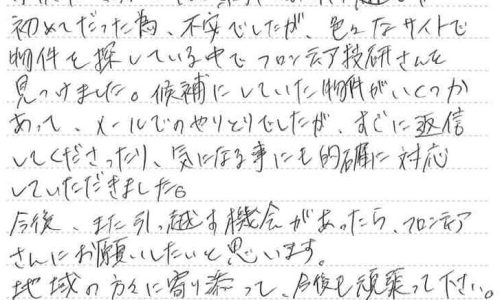 初めてだった為、不安でしたが、色々なサイトで
物件を探している中でフロンティア技研さんを
見つけました。候補にしていた物件がいくつか
あって、メールでのやりとりでしたが、すぐに返信
してくださったり、気になる事にも的確に対応
していただきました。
今後、また引っ越す機会があったら、フロンティア
さんにお願いしたいと思います。
地域の方々に寄り添って、今後も頑張って下さい。